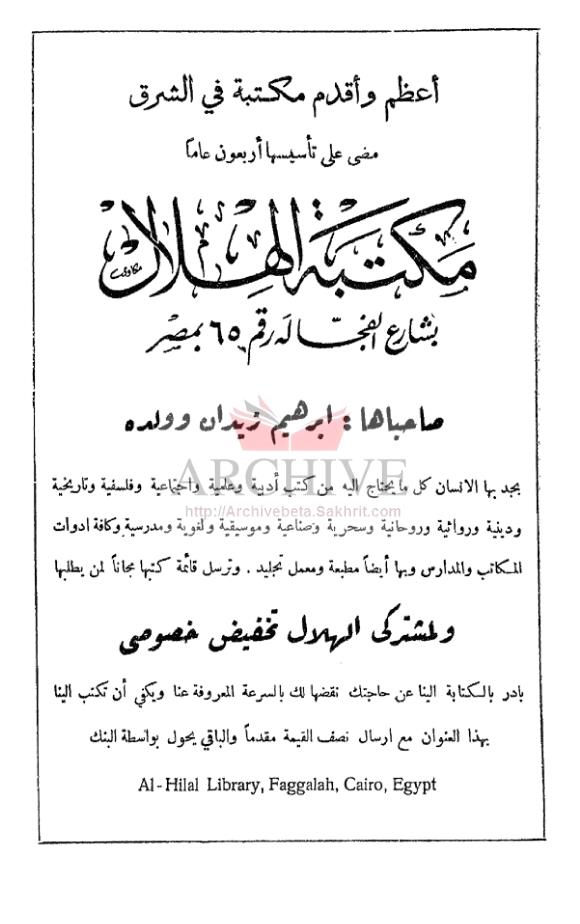 أعظم وأقدم مكتبة في الشرق
مضى على تأسيسها أربعون عاماً
مكتبة الهلال
بشارع الفجالة رقم ٦٥ بمصر
صاحباها : ابرهيم زيدان وولده
ARCHIVE
يجد بها الانسان كل ما يحتاج اليه من كتب أدبية وعلمية واجتماعية وفلسفية وتاريخية
http://Archivebeta.Sakhrit.com
ودينية وروائية وروحانية وسحرية وصناعية وموسيقية ولغوية ومدرسية وكافة ادوات
المكاتب والمدارس وبها أيضاً مطبعة ومعمل تجليد . وترسل قائمة كتبها مجاناً لمن يطلبها
ولمشتركى الهلال تخفيض خصوصى
بادر بالكتابة الينا عن حاجتك نقضها لك بالسرعة المعروفة عنا ويكفي أن تكتب الينا
بهذا العنوان مع ارسال نصف القيمة مقدماً والباقي يحول بواسطة البنك
Al-Hilal Library, Faggalah, Cairo, Egypt